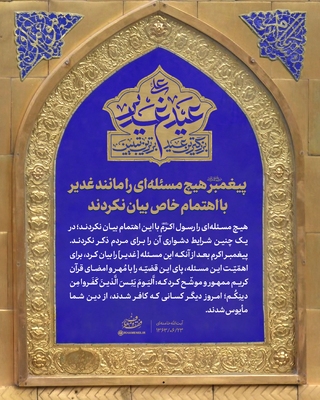 عید غدیر
پیغمبر هیچ مسئله‌ای را مانند غدیر
با اهتمام خاص بیان نکردند
هیچ مسئله‌ای را رسول اکرم با این اهتمام بیان نکردند؛ در
یک چنین شرایط دشواری آن را برای مردم ذکر نکردند.
پیغمبر اکرم بعد از آنکه این مسئله [غدیر] را بیان کرد، برای
اهمّیّت این مسئله، پای این قضیّه را با مُهر و امضای قرآن
کریم ممهور و موشّح کرد که: اَلیَومَ یَئِسَ الَّذینَ کَفَروا مِن
دینِکُم؛ امروز دیگر کسانی که کافر شدند، از دین شما
مأیوس شدند.